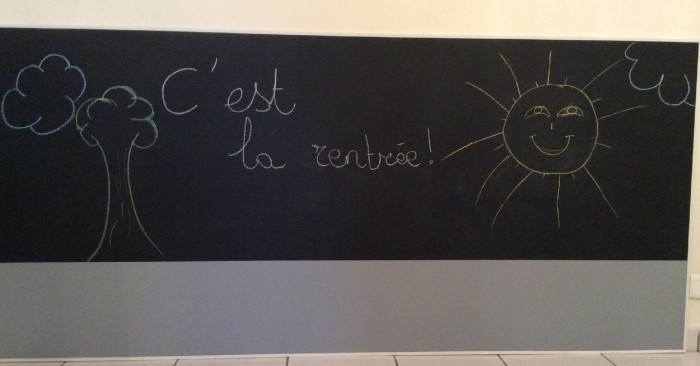 C'est
la rentrée!